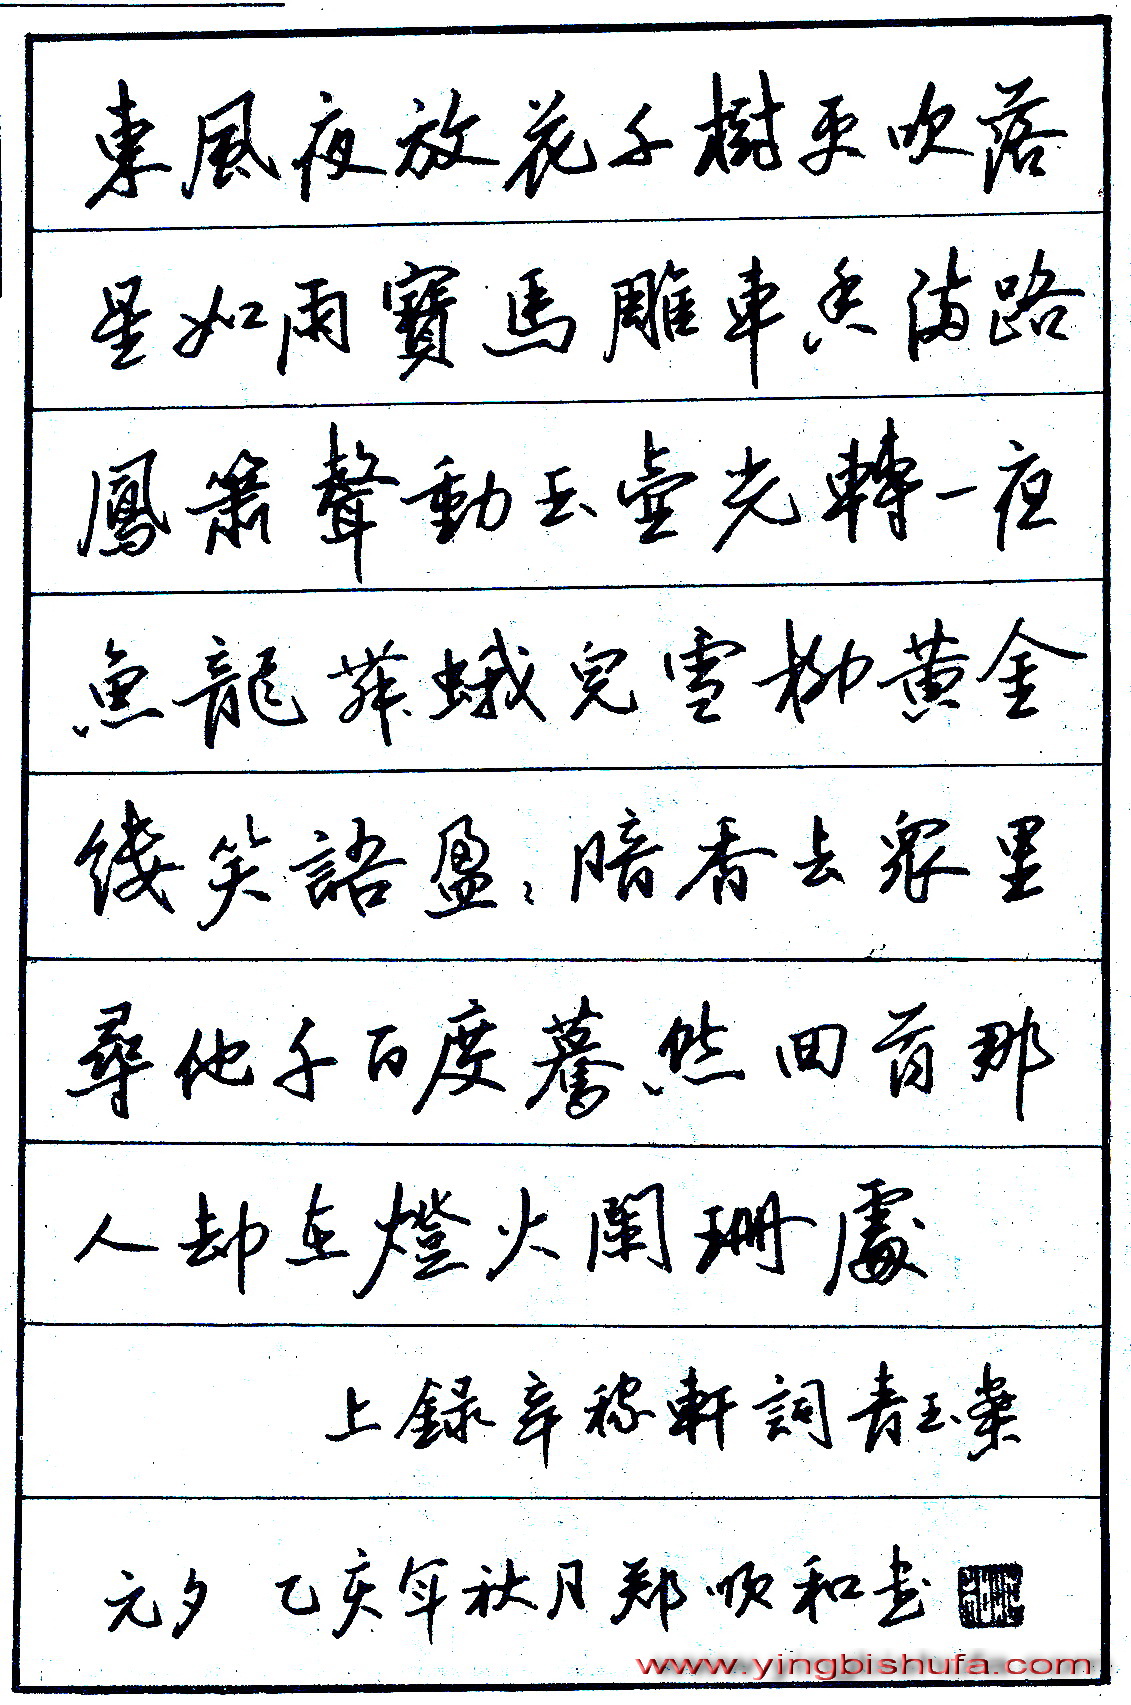 東風夜放花千樹更吹落
星如雨寶馬雕車香滿路
鳳簫聲動玉壺光轉一夜
魚龍舞蛾兒雪柳黄金
縷笑語盈〻暗香去衆里
尋他千百度驀然回首那
人却在燈火闌珊處
上録辛稼軒詞青玉案
元夕 乙亥年秋月郑顺和书
www.yingbishufa.com